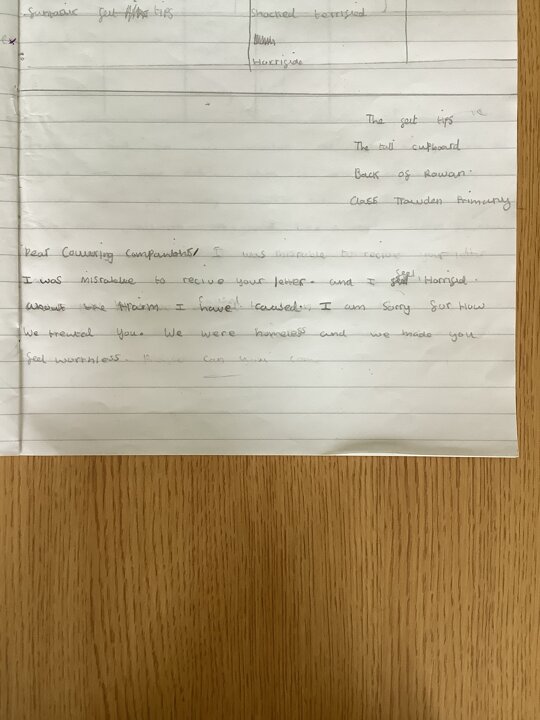 felt tips
Shocked terrified
Horrifide
The felt tips
The tall cupboard
Back of Rowan
Class Trawden Primary
Dear Cowering Companions, I was misrable to recive your letter
I was misrable to recive your letter. and I feel Horrified
about the Hraim I have caused. I am Sorry for How
We treated you. We were homeless and we made you
feel worthless. can you